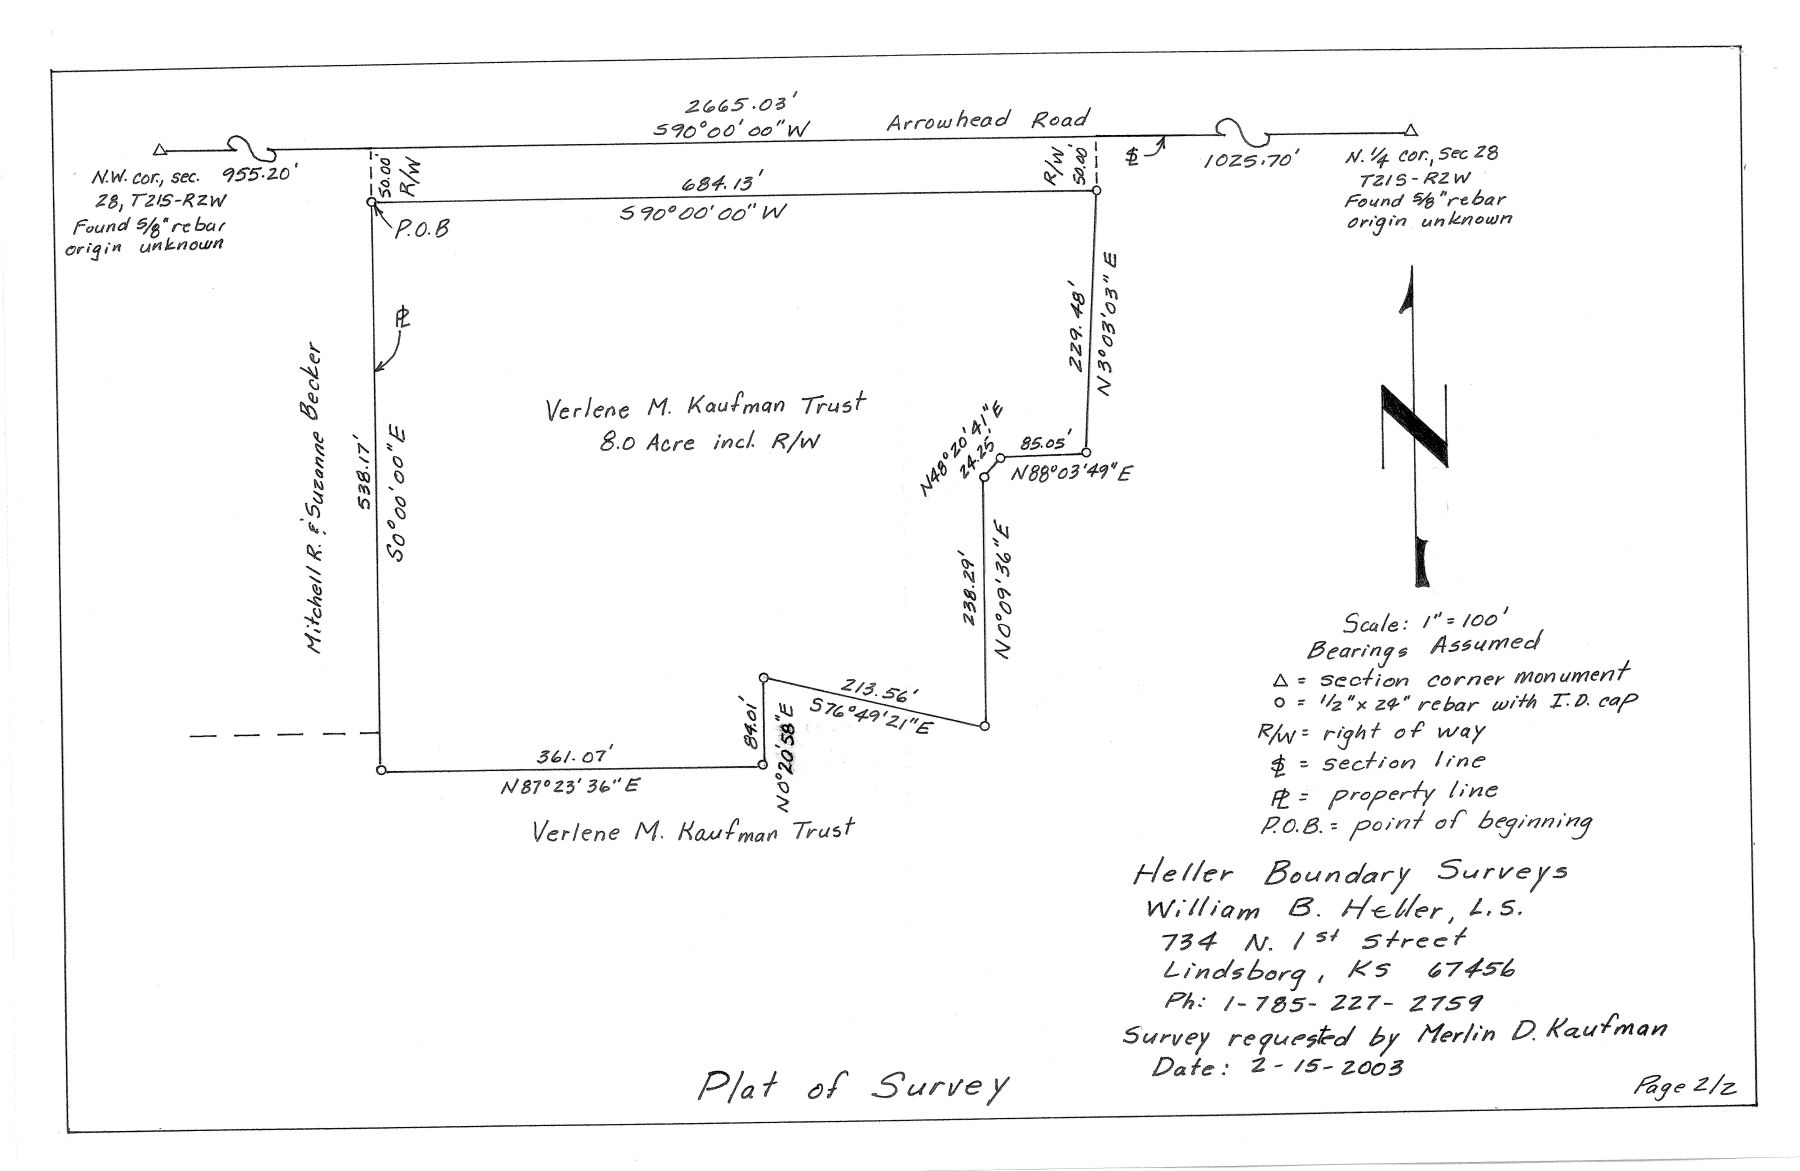 2665.03'
S90°00'00"W
Arrowhead Road
N.W. cor., sec.
28, T21S-R2W
Found 5/8" rebar
origin unknown
955.20'
50.00'
R/W
684.13'
S90°00'00"W
P.O.B
R/W
50.00'
SL
1025.70'
N. 1/4 cor., Sec 28
T21S-R2W
Found 5/8" rebar
origin unknown
PL
229.48'
N3°03'03"E
Mitchell R. & Suzanne Becker
538.17'
S0°00'00"E
Verlene M. Kaufman Trust
8.0 Acre incl. R/W
N48°20'41"E
24.25'
85.05'
N88°03'49"E
238.29'
N0°09'36"E
213.56'
S76°49'21"E
84.01'
N0°20'58"E
361.07'
N87°23'36"E
Verlene M. Kaufman Trust
N
Scale: 1"=100'
Bearings Assumed
△ = section corner monument
o = 1/2"x 24" rebar with I.D. cap
R/W = right of way
SL = section line
PL = property line
P.O.B. = point of beginning
Heller Boundary Surveys
William B. Heller, L.S.
734 N. 1st Street
Lindsborg, KS 67456
Ph: 1-785-227-2759
Survey requested by Merlin D. Kaufman
Date: 2-15-2003
Plat of Survey
Page 2/2